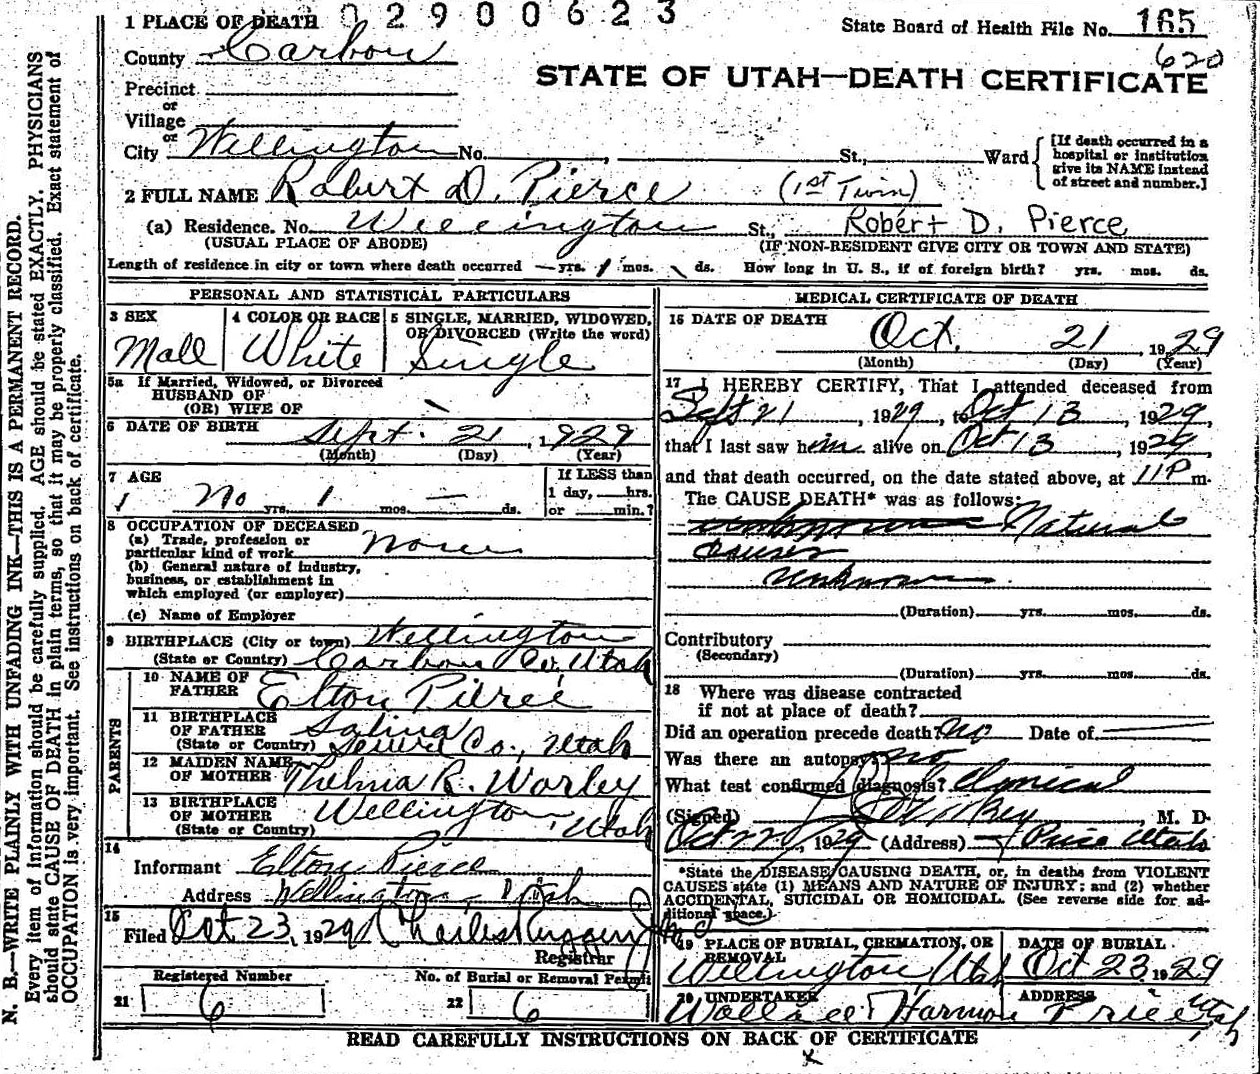 02900623
1 PLACE OF DEATH
State Board of Health File No. 165
620
County Carbon
STATE OF UTAH—DEATH CERTIFICATE
Precinct
or
Village
or
City Wellington No. , St., Ward
[If death occurred in a hospital or institution give its NAME instead of street and number.]
2 FULL NAME Robert D. Pierce (1st Twin)
(a) Residence. No. Wellington St., Robert D. Pierce
(USUAL PLACE OF ABODE) (IF NON-RESIDENT GIVE CITY OR TOWN AND STATE)
Length of residence in city or town where death occurred — yrs. 1 mos. ds. How long in U. S., if of foreign birth? yrs. mos. ds.
PERSONAL AND STATISTICAL PARTICULARS
3 SEX 4 COLOR OR RACE 5 SINGLE, MARRIED, WIDOWED,
OR DIVORCED (Write the word)
Male White Single
5a If Married, Widowed, or Divorced
HUSBAND OF
(OR) WIFE OF
6 DATE OF BIRTH Sept. 21, 1929
(Month) (Day) (Year)
7 AGE If LESS than
1 day, hrs.
No yrs. 1 mos. — ds. or min.?
8 OCCUPATION OF DECEASED
(a) Trade, profession or
particular kind of work None
(b) General nature of industry,
business, or establishment in
which employed (or employer)
(c) Name of Employer
9 BIRTHPLACE (City or town) Wellington
(State or Country) Carbon Co, Utah
PARENTS
10 NAME OF
FATHER Elton Pierce
11 BIRTHPLACE
OF FATHER Salina
(State or Country) Sevier Co., Utah
12 MAIDEN NAME
OF MOTHER Thelma R. Worley
13 BIRTHPLACE
OF MOTHER Wellington, Utah
(State or Country)
14
Informant Elton Pierce
Address Wellington Utah
15
Filed Oct 23, 1929 Charles
Registrar
Registered Number No. of Burial or Removal Permit
21 6 22 6
MEDICAL CERTIFICATE OF DEATH
16 DATE OF DEATH
Oct. 21, 1929
(Month) (Day) (Year)
17 I HEREBY CERTIFY, That I attended deceased from
Sept 21, 1929, to Oct 13, 1929,
that I last saw him alive on Oct 13, 1929,
and that death occurred, on the date stated above, at 11P m.
The CAUSE DEATH* was as follows:
unknown Natural
causes
unknown
(Duration) yrs. mos. ds.
Contributory
(Secondary)
(Duration) yrs. mos. ds.
18 Where was disease contracted
if not at place of death?
Did an operation precede death? No Date of
Was there an autopsy? no
What test confirmed diagnosis? Clinical
(Signed) , M. D.
Oct 22, 1929 (Address) Price Utah
*State the DISEASE CAUSING DEATH, or, in deaths from VIOLENT
CAUSES state (1) MEANS AND NATURE OF INJURY; and (2) whether
ACCIDENTAL, SUICIDAL OR HOMICIDAL. (See reverse side for ad-
ditional space.)
19 PLACE OF BURIAL, CREMATION, OR DATE OF BURIAL
REMOVAL
Wellington, Utah Oct 23 1929
20 UNDERTAKER ADDRESS
Wallace Harmon Price Utah
READ CAREFULLY INSTRUCTIONS ON BACK OF CERTIFICATE
x
N. B.—WRITE PLAINLY WITH UNFADING INK—THIS IS A PERMANENT RECORD.
Every item of information should be carefully supplied. AGE should be stated EXACTLY. PHYSICIANS
should state CAUSE OF DEATH in plain terms, so that it may be properly classified. Exact statement of
OCCUPATION is very important. See instructions on back of certificate.